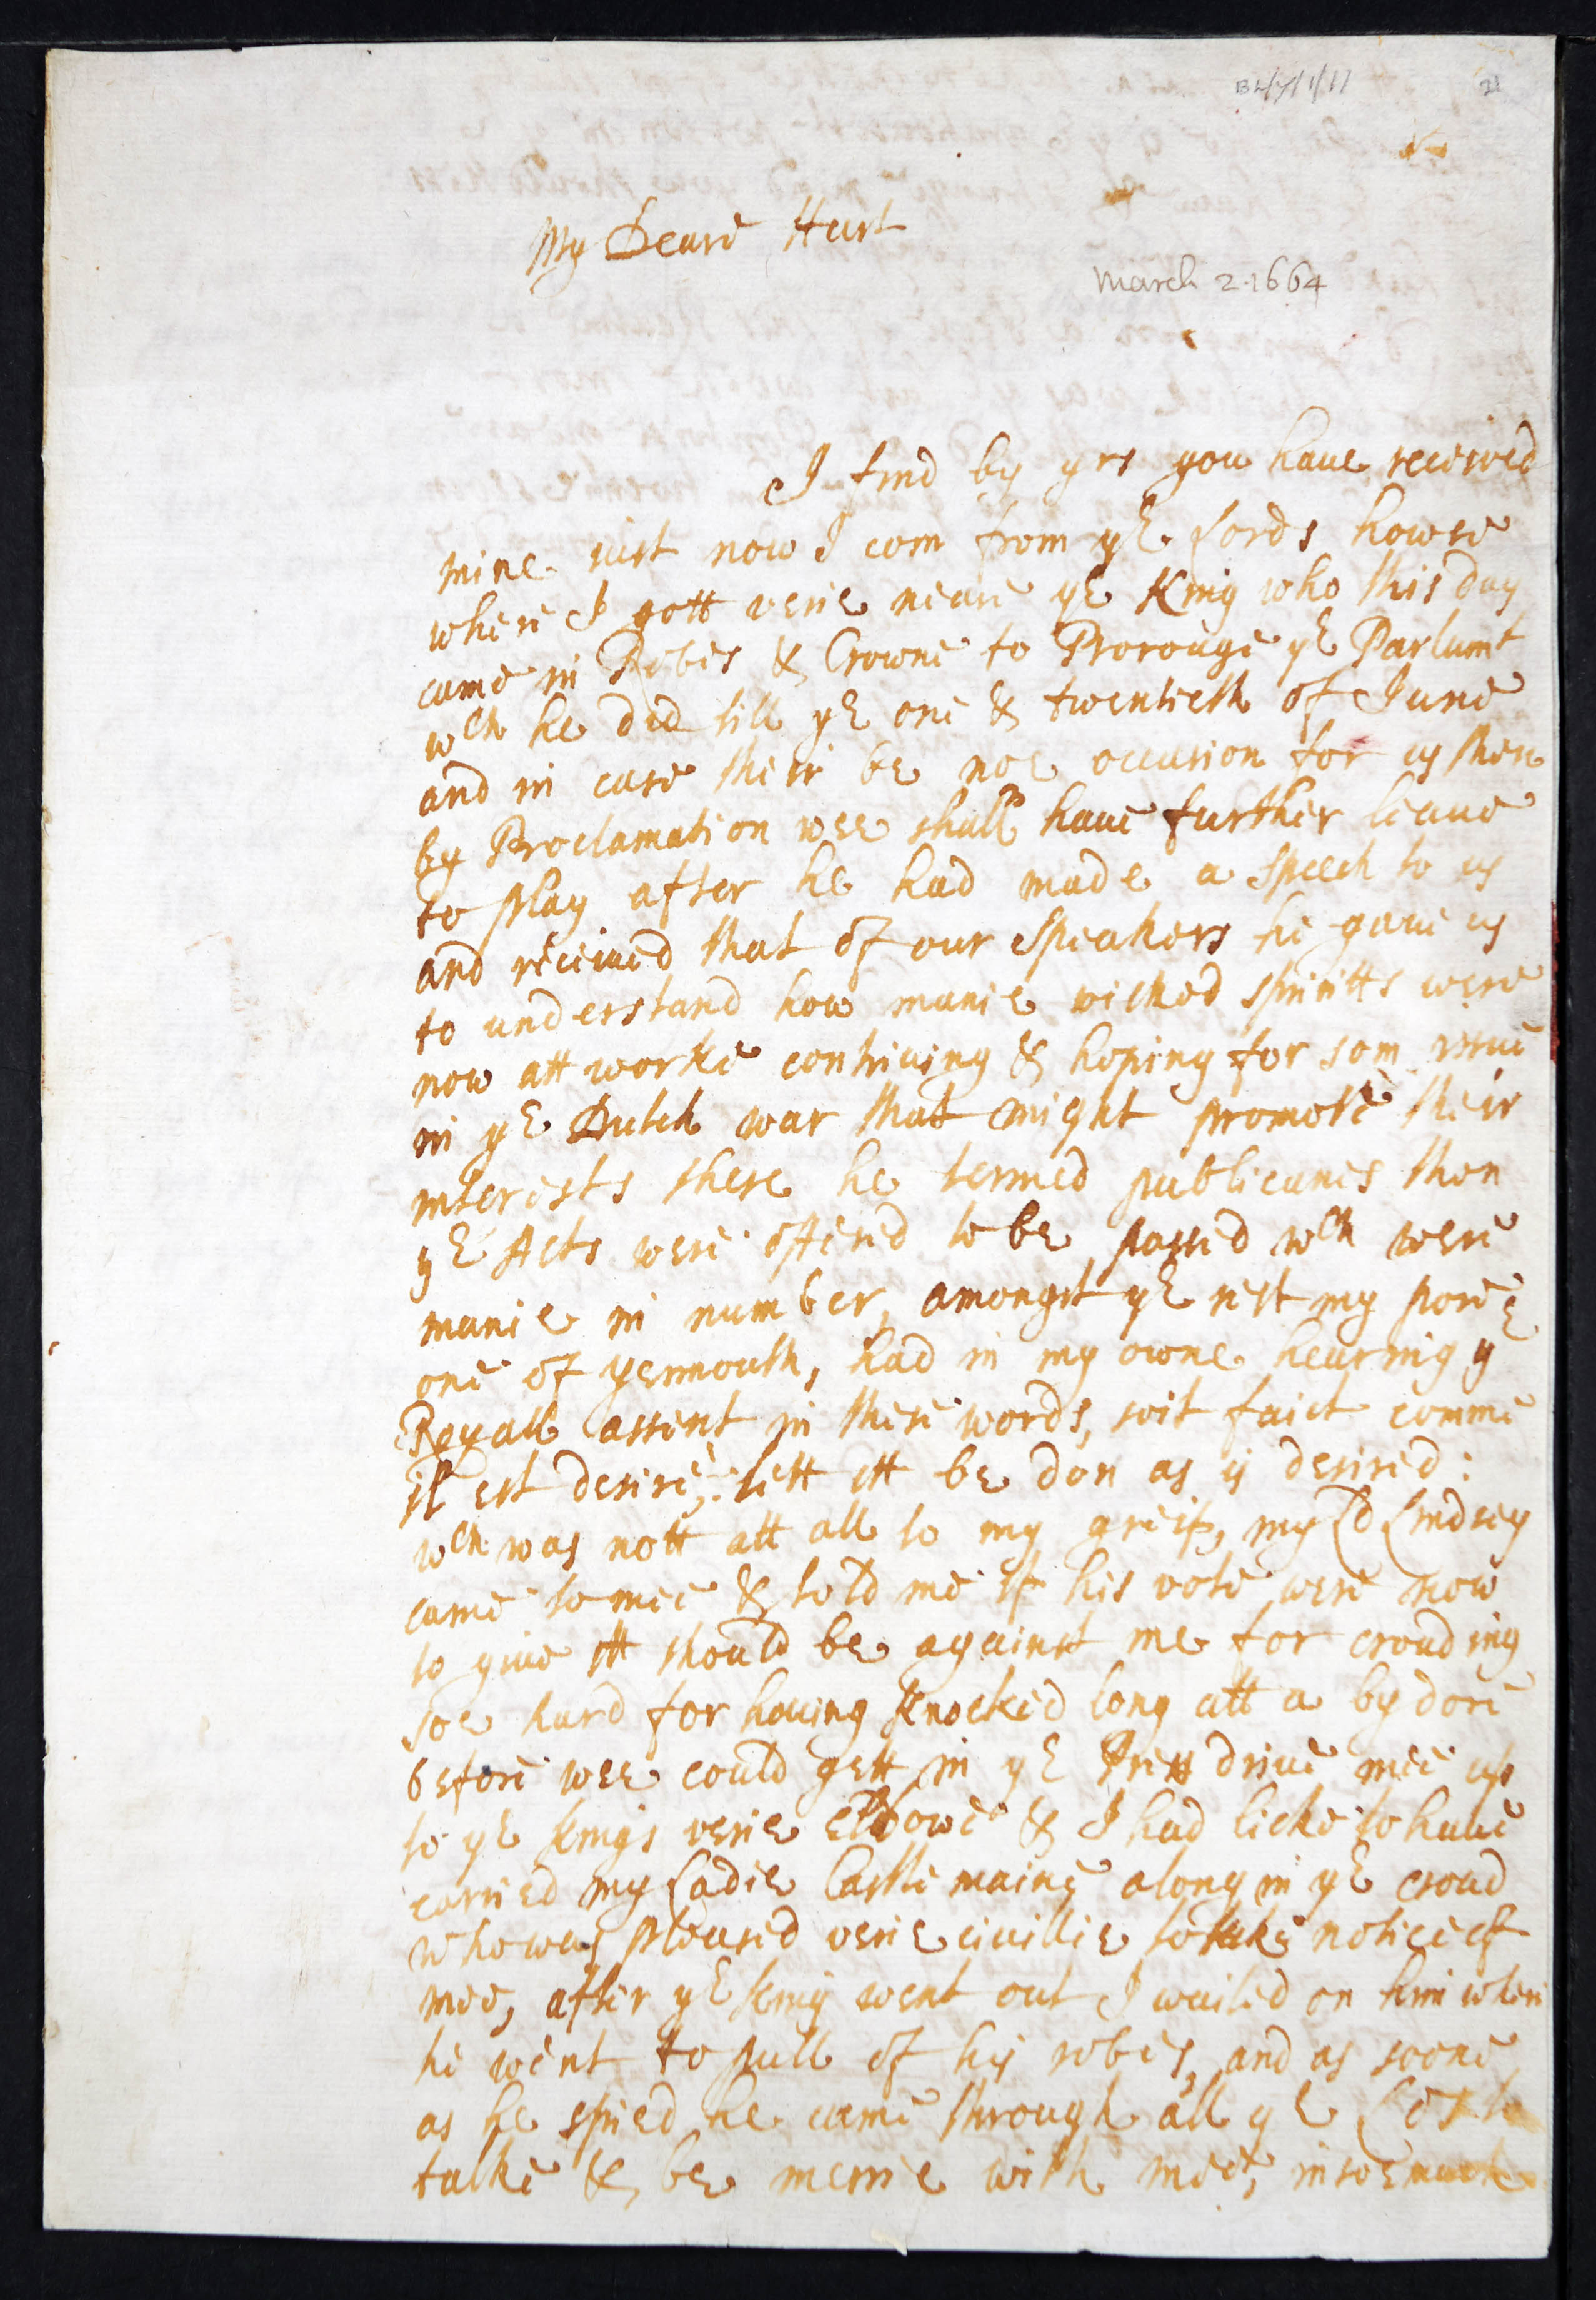 BL/Y/1/11
21
My Deare Hart
March 2. 1664
I find by yrs you haue received
mine. iust now I com from ye Lords howse
where I gott verie neare ye King who this day
came in Robes & Crowne to Prorouge ye Parlumt
wch he did till ye one & twentieth of June
and in case their be noe occasion for us then
by Proclamation wee shall haue further leaue
to play after he had made a speech to us
and receiued that of our Speakers he gaue us
to understand how manie wicked spiritts were
now att worke contriuing & hoping for som issue
in ye Dutch war that might promote their
interests these he termed publicanes then
ye Acts were offered to be passed wch were
manie in number, amongst ye rest my pore
one of yermouth, had in my owne hearing ye
Royall assent in these words, soit faict comme
il est desire: lett itt be don as is desired:
wch was nott att all to my greife, my Ld Lindsey
came to mee & told me if his vote were now
to giue itt should be against me for crouding
soe hard for hauing knocked long att a by dore
before wee could gett in ye Press driue mee up
to ye Kings verie elbowe & I had licke to haue
carried my Ladie Castlemaine along in ye croud
who was pleased verie ciuillie to take notice of
mee, after ye King went out I waited on him when
he went to pull of his robes, and as soone
as he spied he came through all ye Lds to
talke & be merrie with mee, insoemuch